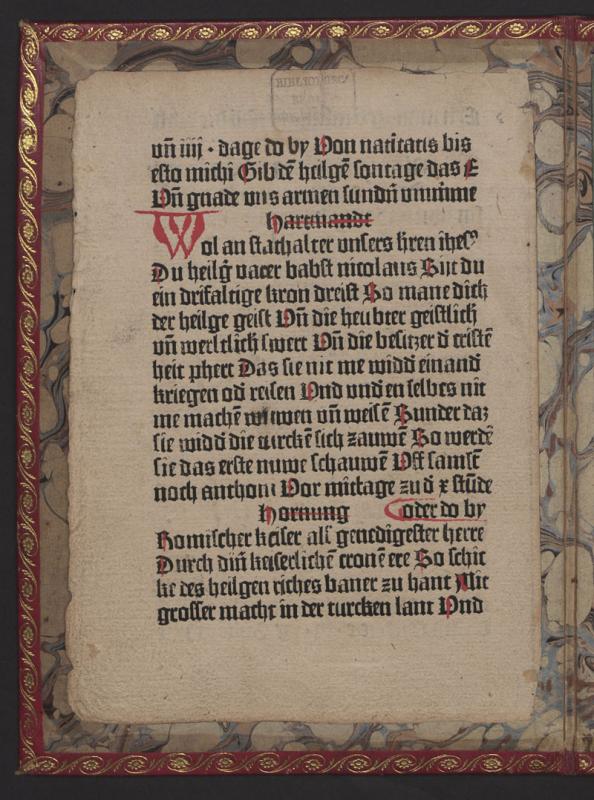 BIBLIOTHECA
REGIA
vñ iiij · dage do by Von natiuitatis bis
esto michi Gib dē heilgē sontage das E
Vñ gnade vns armen sundñ vmmme
hartmandt
Wol an stathalter vnsers hren ihesꝰ
Du heilg̃ vater babst nicolaus Sijt du
ein drifaltige kron dreist So mane dich
der heilge geist Vñ die heubter geistlich
vñ werltlich swert Vñ die besitzer d̃ cristē
heit ꝑhert Das sie nit me widd̃ einand̃
kriegen od̃ reisen Vnd vnd̃en selbes nit
me machē witwen vñ weisē Sunder daz
sie widd̃ die turckē sich zauwē So werdē
sie das erste nuwe schauwē Vff samsē
noch anthoni Vor mittage zu d̃ x stūde
hornung oder do by
Romischer keiser alľ genedigester herre
Durch din̄ keiserlichē cronē ere So schic
ke des heilgen riches baner zu hant Mit
grosser macht in der turcken lant Vnd